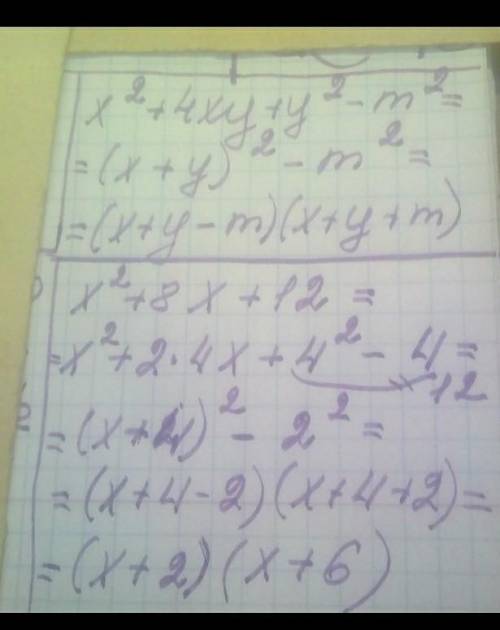 x² + 4xy + y² - m² =
= (x + y)² - m² =
= (x + y - m)(x + y + m)
x² + 8x + 12 =
= x² + 2·4x + 4² - 4 =
12
= (x + 4)² - 2² =
= (x + 4 - 2)(x + 4 + 2) =
= (x + 2)(x + 6)